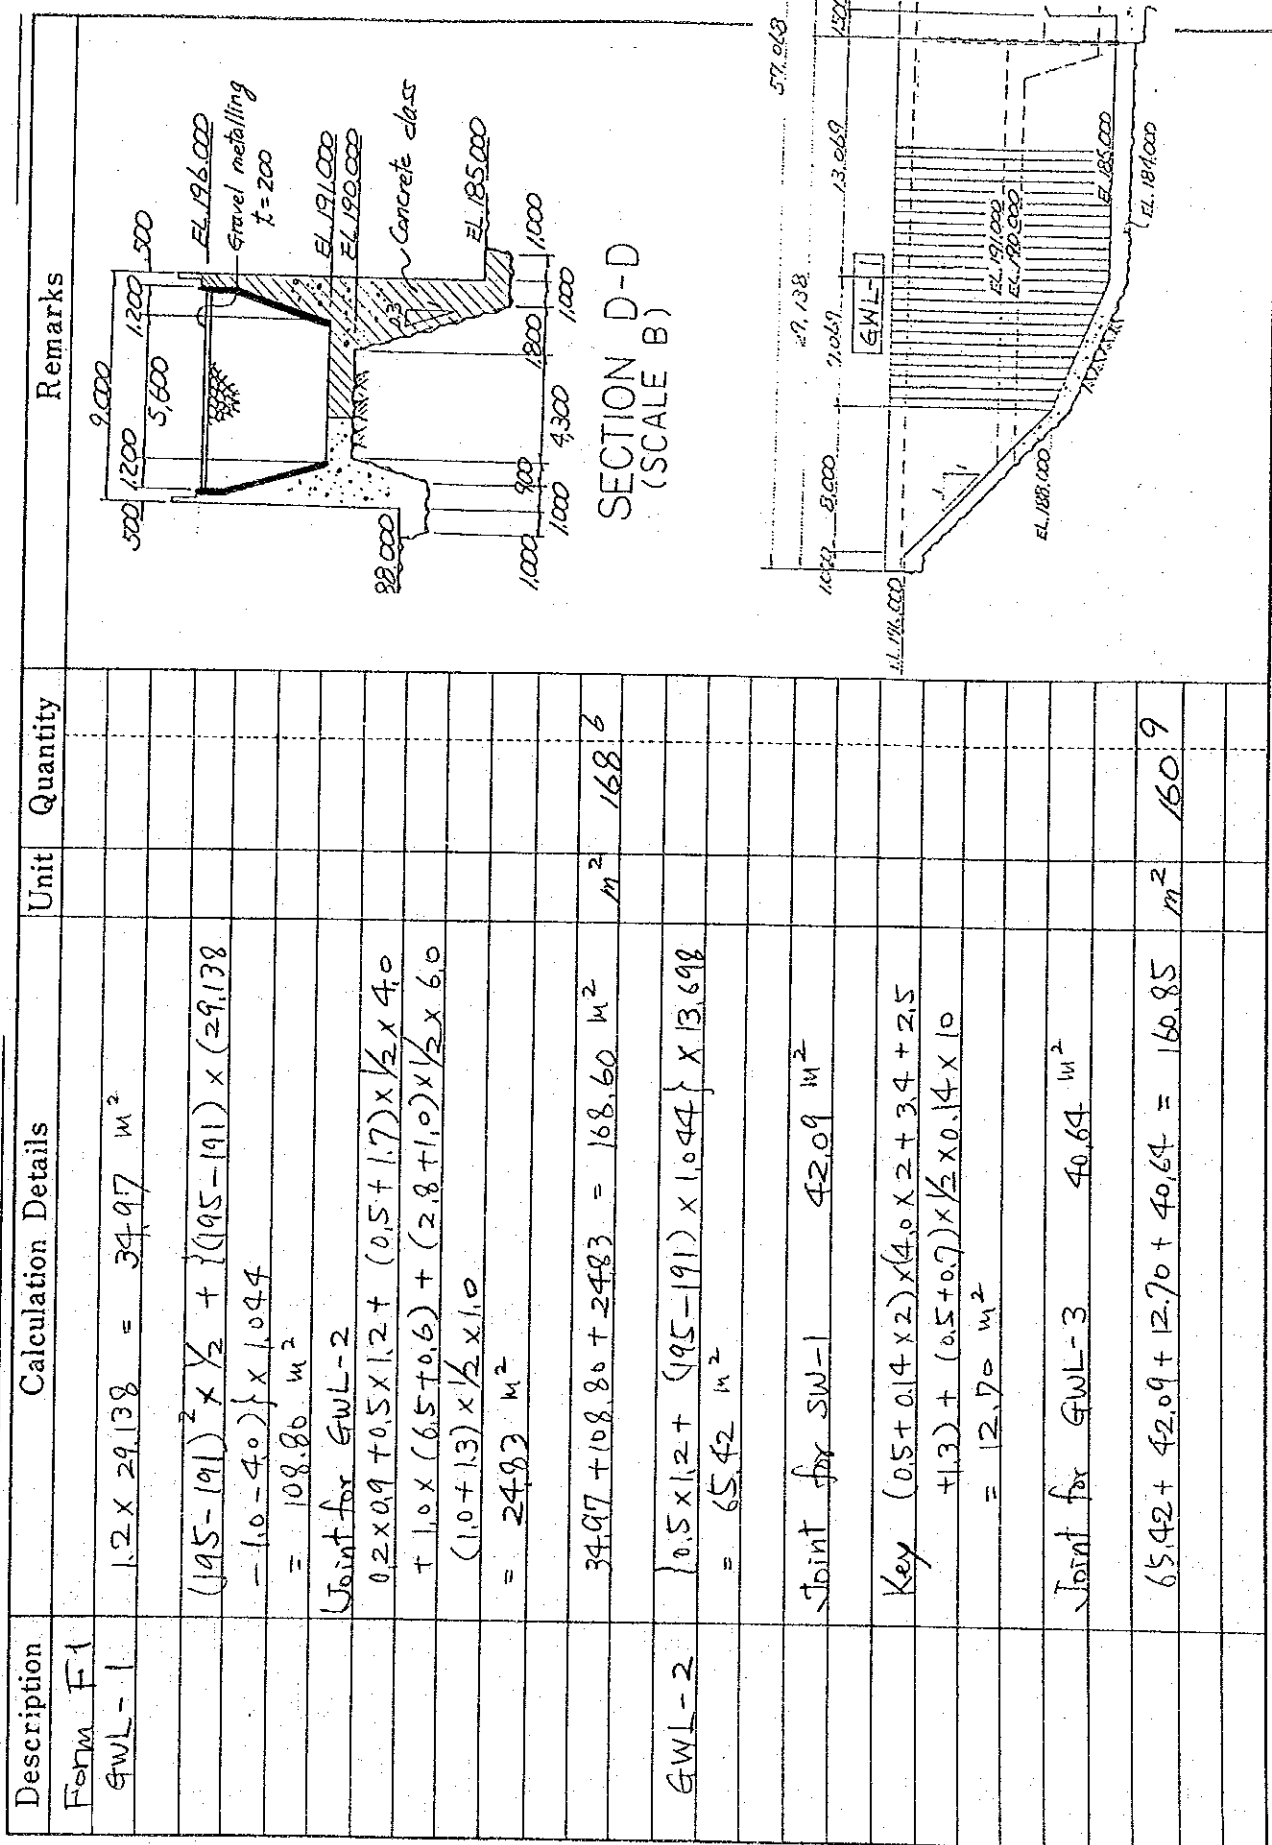 Description Calculation Details Unit Quantity Remarks
Form F1
GWL-1 1.2 × 29.138 = 34.97 m²
(195-191)² × 1/2 + {(195-191) × (29.138
-1.0-4.0)} × 1.044
= 108.80 m²
Joint for GWL-2
0.2×0.9 + 0.5×1.2 + (0.5+1.7)×1/2×4.0
+ 1.0 × (6.5+0.6) + (2.8+1.0)×1/2×6.0
(1.0+1.3)×1/2×1.0
= 24.83 m²
34.97 + 108.80 + 24.83 = 168.60 m² m² 168 6
GWL-2 {0.5×1.2 + (195-191)×1.044} × 13.698
= 65.42 m²
Joint for SW-1 42.09 m²
Key (0.5+0.14×2)×(4.0×2+3.4+2.5
+1.3) + (0.5+0.7)×1/2×0.14×10
= 12.70 m²
Joint for GWL-3 40.64 m²
65.42 + 42.09 + 12.70 + 40.64 = 160.85 m² 160 9
9,000
500 1,200 1,200 500
5,600
EL.196.000
Gravel metalling
t=200
EL.191.000
EL.190.000
Concrete class
EL.185.000
88.000
1,000 900 1,800 1,000
1,000 4,300 1,000
SECTION D-D
(SCALE B)
57.068
29.138
1,000 8,000 7.069 13.069 1,500
GWL-1
EL.196.000
EL.191.000
EL.190.000
EL.188.000
EL.185.000
EL.184.000